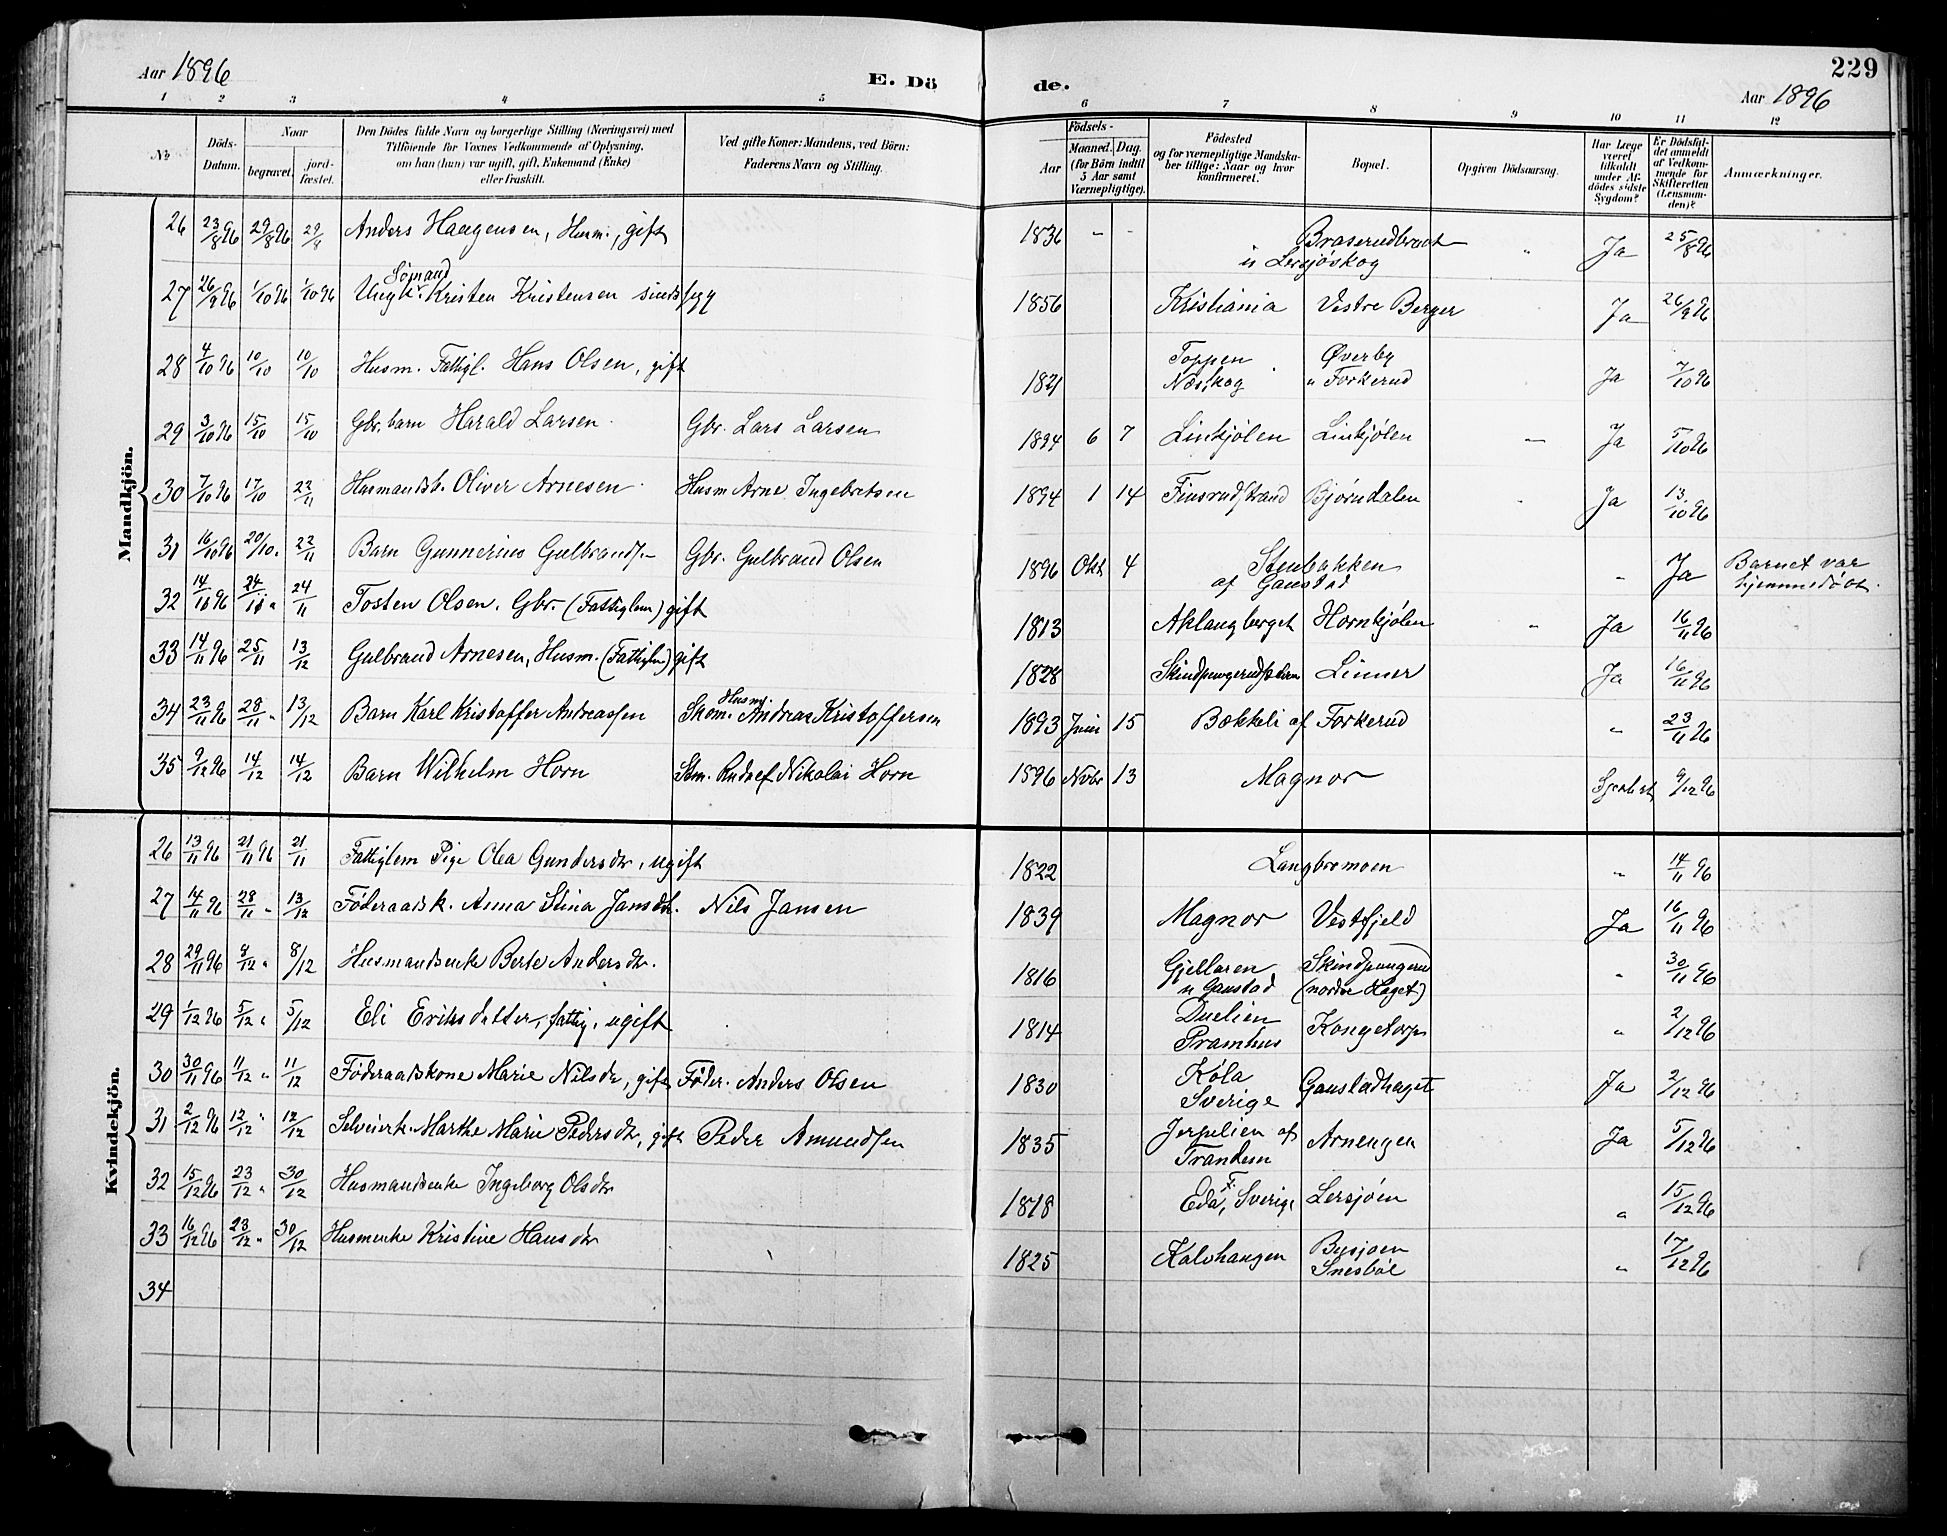 Aar 1896
E. Dö
de.
229
Aar 1896
1 2 3 4 5 6 7 8 9 10 11 12
№
Döds-Datum.
Naar
begravet.
jord-fæstet.
Den Dödes fulde Navn og borgerlige Stilling (Næringsvei) med
Tilföiende for Voxnes Vedkommende af Oplysning,
om han (hun) var ugift, gift, Enkemand (Enke)
eller fraskilt.
Ved gifte Koner: Mandens, ved Börn:
Faderens Navn og Stilling.
Födsels-
Aar
Maaned. Dag.
(for Börn indtil
5 Aar samt
Værnepligtige).
Födested
og for værnepligtige Mandska-
ber tillige: Naar og hvor
konfirmeret.
Bopæl.
Opgiven Dödsaarsag.
Har Læge
været
tilkaldt
under Af-
dödes sidste
Sygdom?
Er Dödsfal-
det anmeldt
af Vedkom-
mende for
Skifteretten
(Lensman-
den)?
Anmærkninger.
Mandkjön.
26 23/8 96 29/8 96 29/8 Anders Haagensen, Husm., gift 1836 - - Braserudbraat u Lersjöskog " Ja 25/8 96
27 26/9 96 1/10 96 1/10 96 Ungk. Sømand Kristen Kristensen sindssyg 1856 Kristiania Vestre Berger Ja 26/9 96
28 4/10 96 10/10 10/10 Husm. Fattigl. Hans Olsen, gift 1821 Toppen Næskog Øverby u Forkerud Ja 7/10 96
29 3/10 96 15/10 15/10 Gbr. barn Harald Larsen. Gbr. Lars Larsen 1894 6 7 Linkjølen Linkjölen — Ja 5/10 96
30 7/10 96 17/10 22/11 Husmandsb. Oliver Arnesen. Husm Arne Ingebretsen 1894 1 14 Finsrudstrand Bjørndalen Ja 13/10 96
31 16/10 96 20/10 " 22/11 Barn Gunnerius Gulbrands— Gbr. Gulbrand Olsen 1896 Okt 4 Stenbakken af Gaustad " Ja Barnet var hjemmedøbt.
32 14/11 96 24/11 " 24/11 Tosten Olsen. Gbr. (Fattiglem) gift 1813 Aklangberget Hornkjølen " Ja 16/11 96
33 14/11 96 25/11 13/12 Gulbrand Arnesen, Husm. (Fattiglem) gift 1828 Linner Ja 16/11 96
34 23/11 96 28/11 " 13/12 Barn Karl Kristoffer Andreassen Skom. Husm. Andreas Kristoffersen 1893 Juni 15 Bækkeli af Forkerud " 23/11 96
35 9/12 96 14/12 14/12 Barn Wilhelm Horn Nikolai Horn 1896 Novbr 13 Magnor 9/12 96
Kvindekjön.
26 13/11 96 21/11 96 21/11 Fattiglem Pige Olea Gundersdtr, ugift 1822 Langbromoen " 14/11 96
27 14/11 96 28/11 " 13/12 Føderaadsk. Anna Stina Jansdtr. Nils Jansen 1839 Magnor Vestfjeld Ja 16/11 96
28 29/11 96 8/12 " 8/12 Husmandsenke Berte Andersdtr. 1816 Gjellaren u Gaustad Skindpungerud (nordre Haget) " 30/11 96
29 1/12 96 5/12 " 5/12 Eli Eriksdatter, fattig, ugift 1814 Pramhus Kongetorp " 2/12 96
30 30/11 96 11/12 " 11/12 Føderaadskone Marie Nilsdtr, gift Føder. Anders Olsen 1830 Køla Sverige Gaustadhaget Ja 2/12 96
31 2/12 96 12/12 " 12/12 Selveierk. Marthe Marie Pedersdtr, gift Peder Amundsen 1835 Jerpelien af Trandem Arnengen Ja 5/12 96
32 15/12 96 23/12 " 30/12 Husmandsenke Ingeborg Olsdtr 1818 Eda, Sverige Lersjøen " 15/12 96
33 16/12 96 23/12 " 30/12 Husmenke Kristine Hansdtr 1825 Kalvhaugen Busjoen Snesbøl " 17/12 96
34